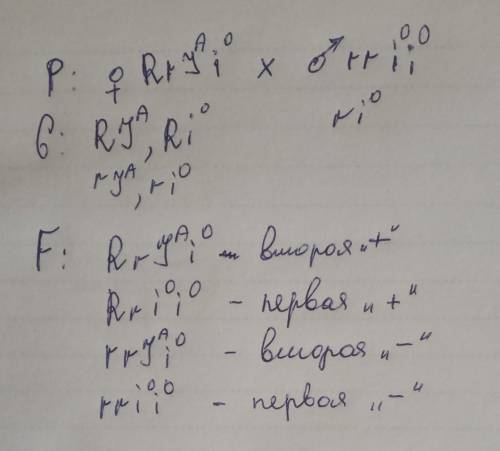 P: ♀ RrJᴬi⁰ x ♂ rri⁰i⁰
G: RJᴬ, Ri⁰ ri⁰
rJᴬ, ri⁰
F: RrJᴬi⁰ - вторая „+“
Rri⁰i⁰ - первая „+“
rrJᴬi⁰ - вторая „-“
rri⁰i⁰ - первая „-“